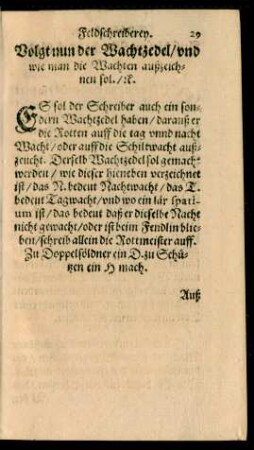 Feldschreiberey. 29
Volgt nun der Wachtzedel/vnd
wie man die Wachten außzeich-
nen sol./ꝛc.
ES sol der Schreiber auch ein son-
dern Wachtzedel haben/darauß er
die Rotten auff die tag vnnd nacht
Wacht/oder auff die Schiltwacht auß-
zeucht. Derselb Wachtzedel sol gemacht
werden/wie dieser hieneben verzeichnet
ist/das N. bedeut Nachtwacht/das T.
bedeut Tagwacht/vnd wo ein lär spati-
um ist/das bedeut daß er dieselbe Nacht
nicht gewacht/oder ist beim Fendlin blie-
ben/schreib allein die Rottmeister auff.
Zu Doppelsöldner ein D. zu Schü-
tzen ein H mach.
Auß